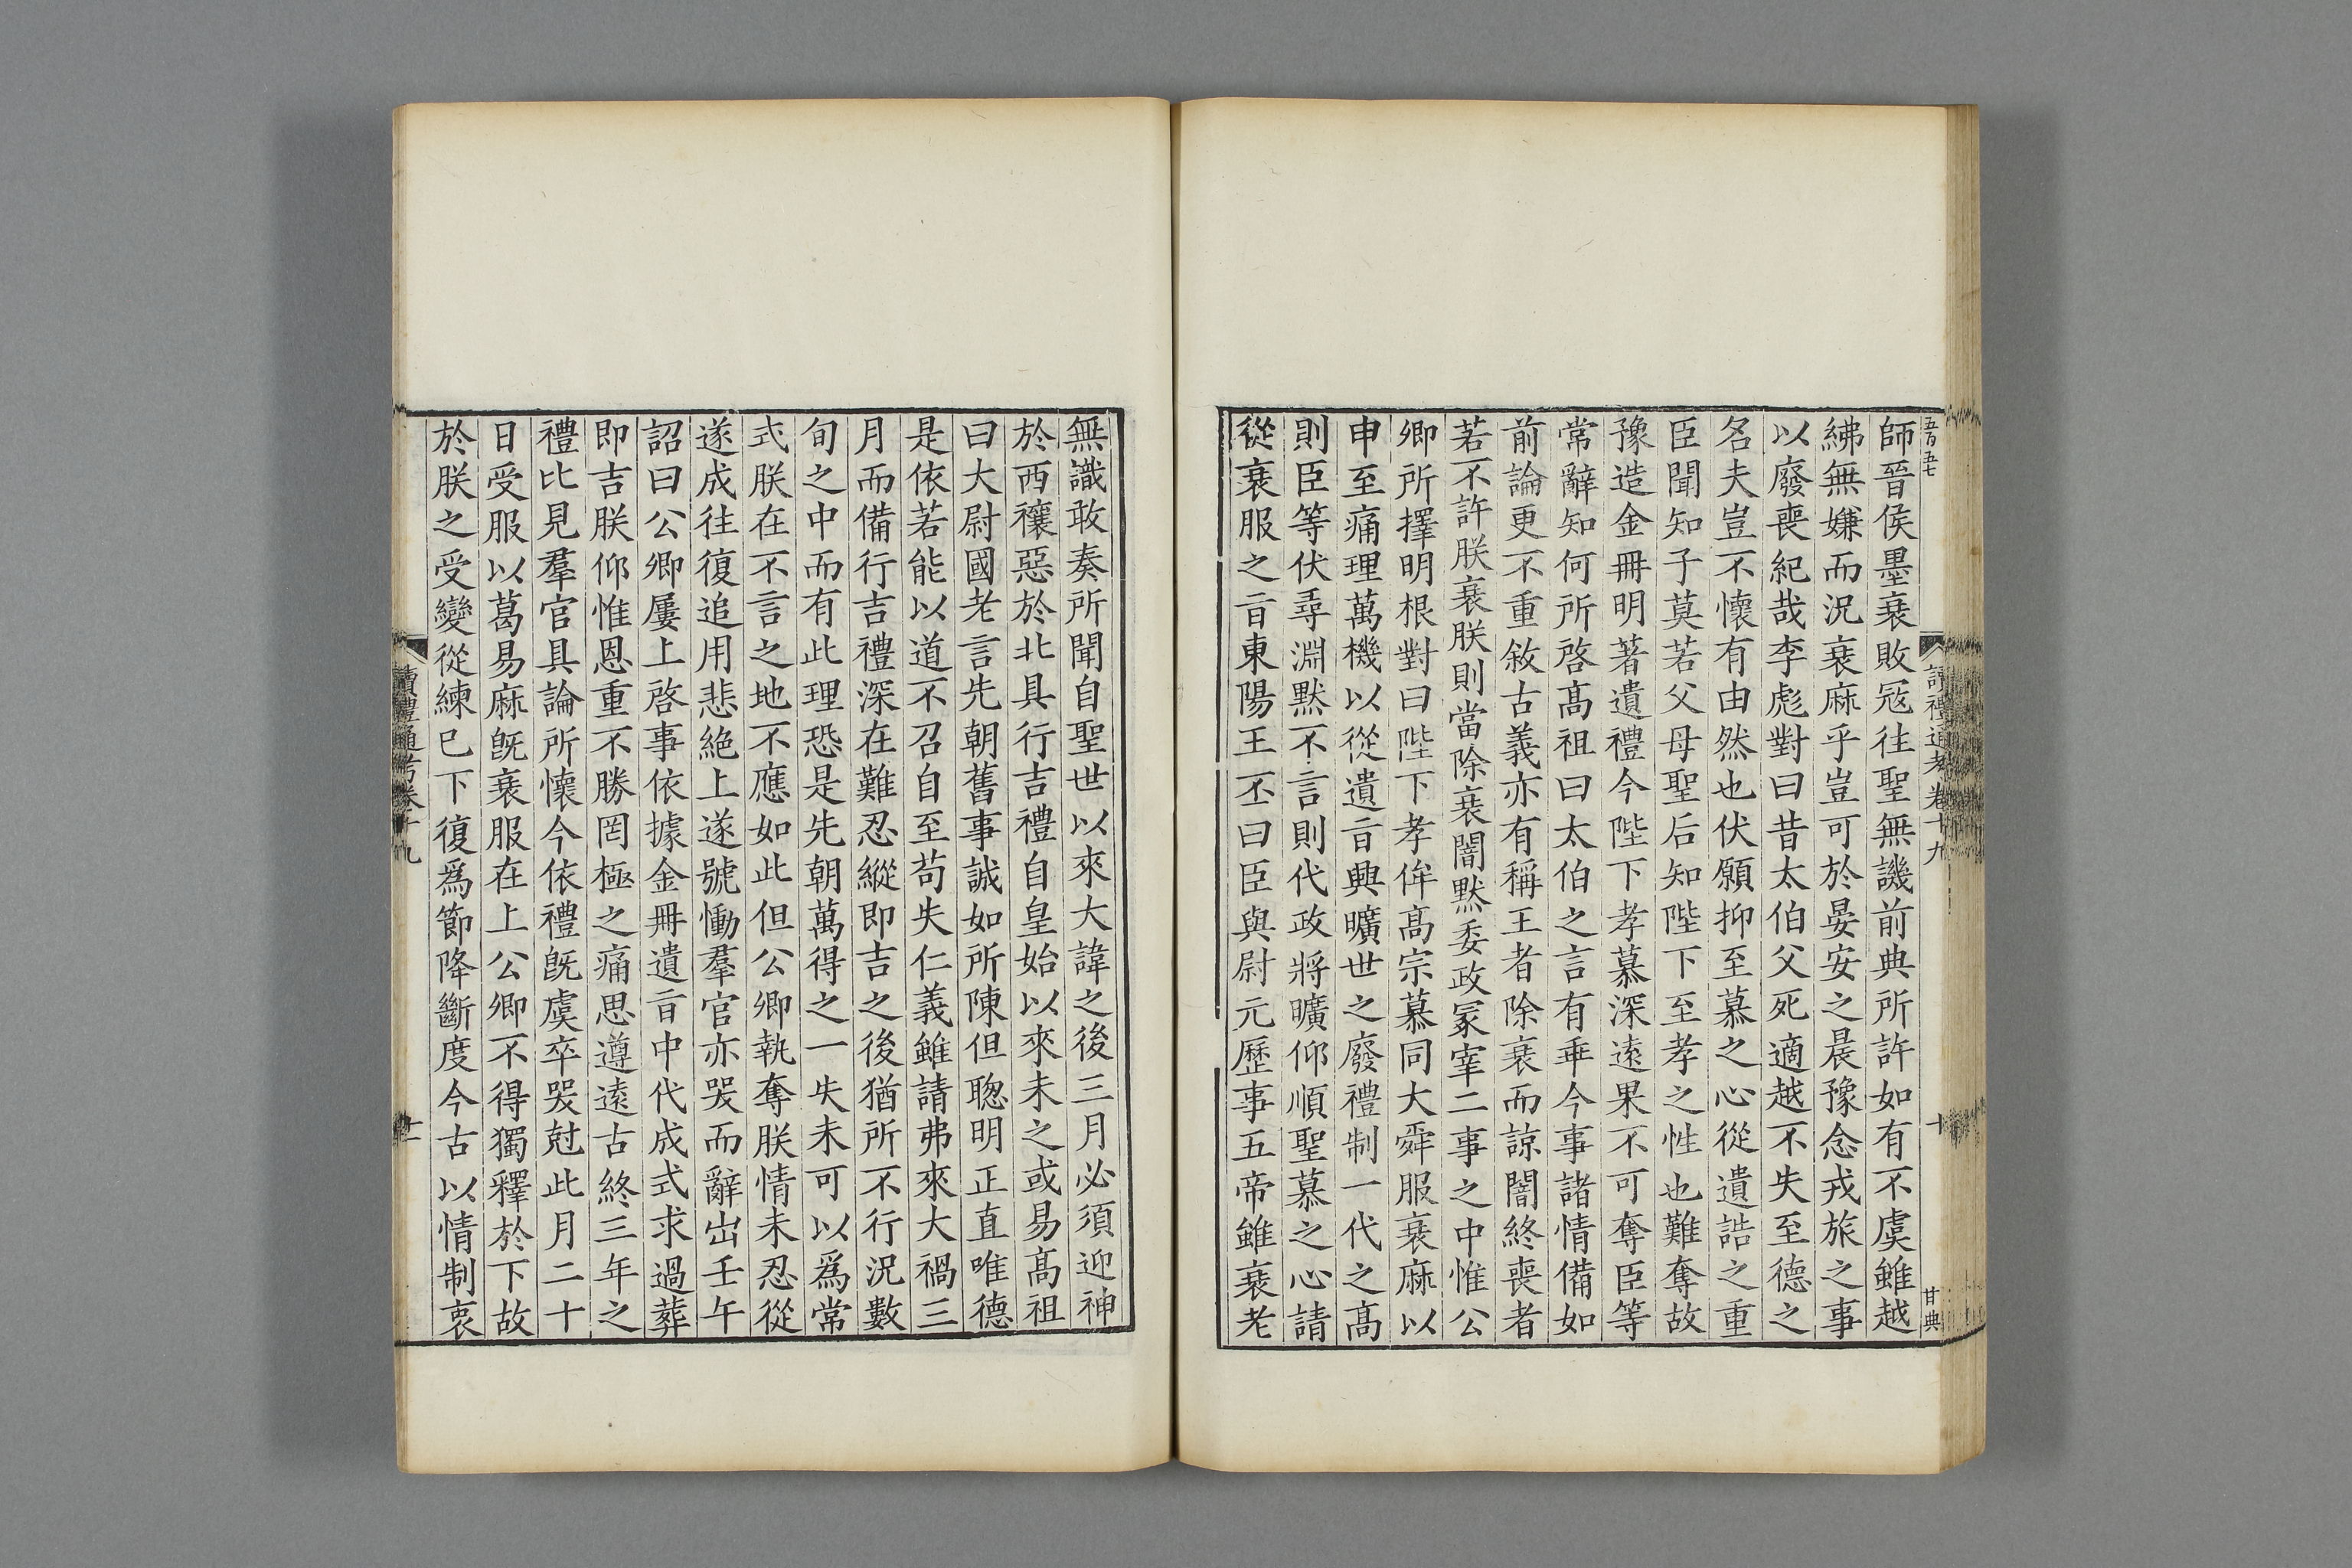 五百五七
讀禮通考卷十九
十
甘典
師晉侯墨衰敗寇往聖無譏前典所許如有不虞雖越
紼無嫌而況衰麻乎豈可於晏安之晨豫念戎旅之事
以廢喪紀哉李彪對曰昔太伯父死適越不失至德之
名夫豈不懷有由然也伏願抑至慕之心從遺誥之重
臣聞知子莫若父母聖后知陛下至孝之性也難奪故
豫造金冊明著遺禮今陛下孝慕深遠果不可奪臣等
常辭知何所啓髙祖曰太伯之言有乖今事諸情備如
前論更不重敘古義亦有稱王者除衰而諒闇終喪者
若不許朕衰朕則當除衰闇默委政冡宰二事之中惟公
卿所擇明根對曰陛下孝侔髙宗慕同大舜服衰麻以
申至痛理萬機以從遺㫖興曠世之廢禮制一代之髙
則臣等伏尋淵默不言則代政將曠仰順聖慕之心請
從衰服之㫖東陽王丕曰臣與尉元歷事五帝雖衰老
無識敢奏所聞自聖世以來大諱之後三月必須迎神
於西禳惡於北具行吉禮自皇始以來未之或易髙祖
曰大尉國老言先朝舊事誠如所陳但聦明正直唯德
是依若能以道不召自至苟失仁義雖請弗來大禍三
月而備行吉禮深在難忍縱即吉之後猶所不行況數
旬之中而有此理恐是先朝萬得之一失未可以爲常
式朕在不言之地不應如此但公卿執奪朕情未忍從
遂成往復追用悲絶上遂號慟羣官亦哭而辭出壬午
詔曰公卿屢上啓事依據金冊遺㫖中代成式求過葬
即吉朕仰惟恩重不勝罔極之痛思遵遠古終三年之
禮比見羣官具論所懷今依禮旣虞卒哭尅此月二十
日受服以葛易麻旣衰服在上公卿不得獨釋於下故
於朕之受變從練巳下復爲節降斷度今古以情制衷
讀禮通考卷十九